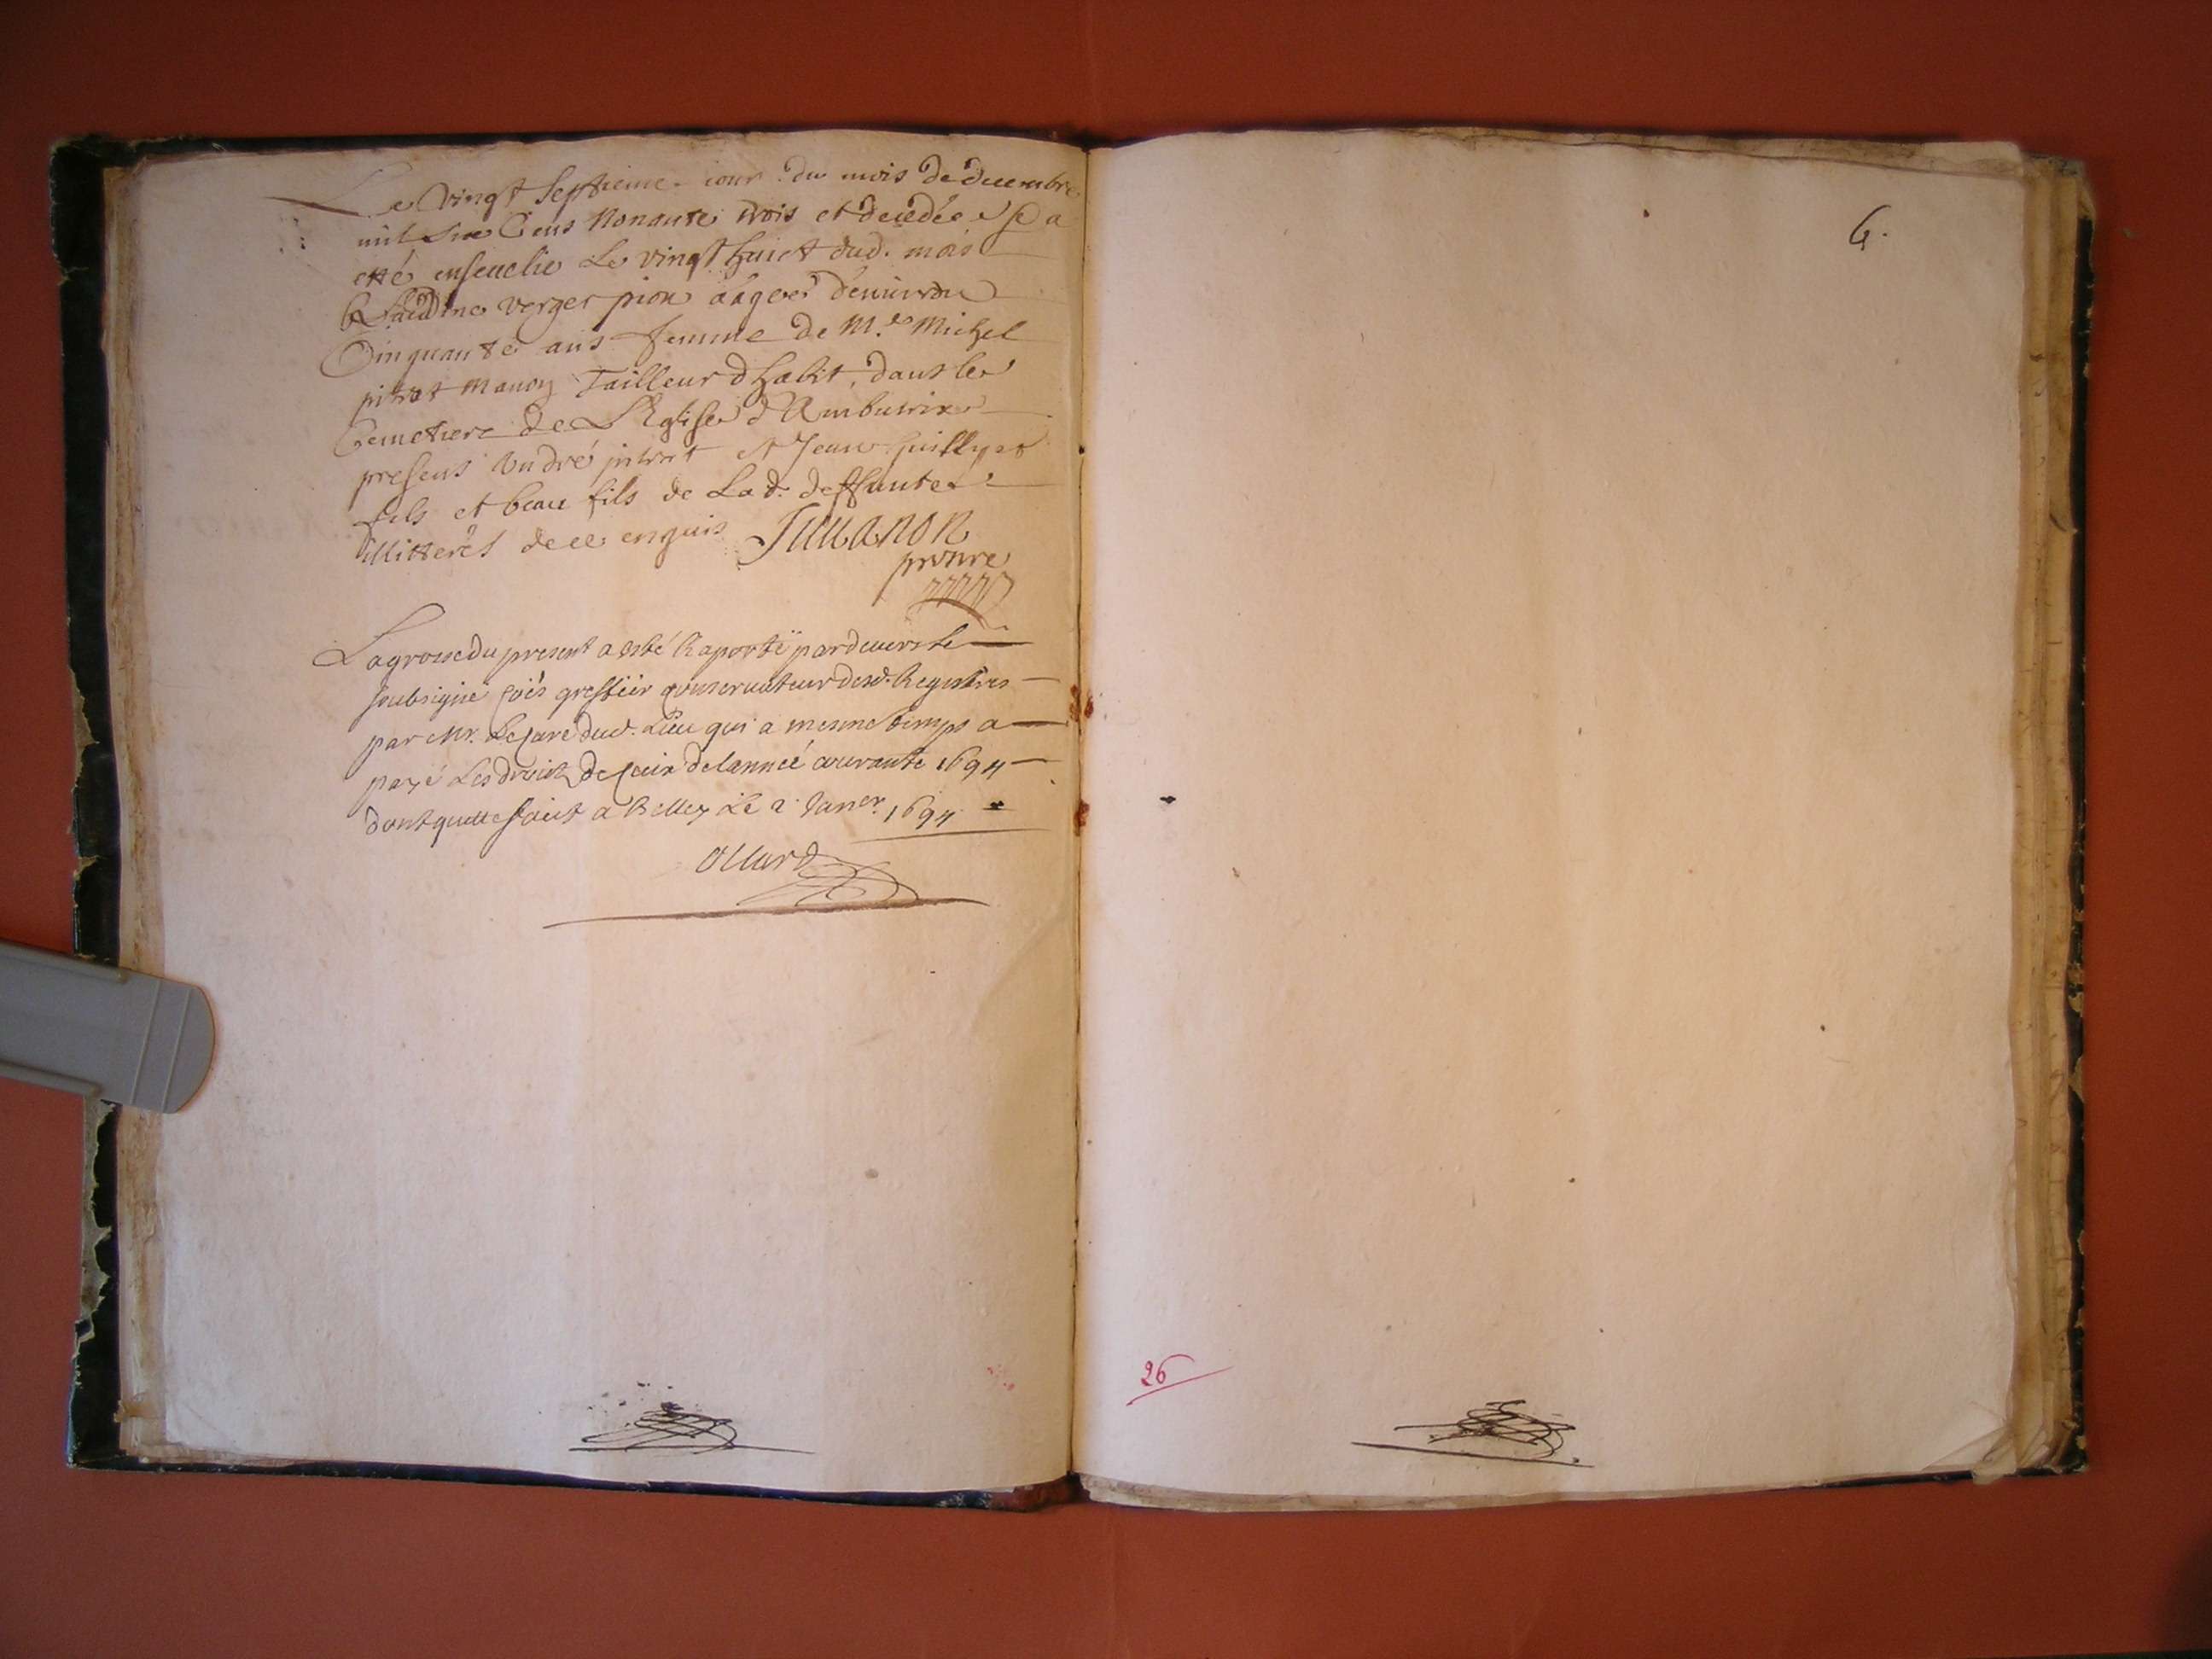 Le vingt septieme iour du mois de decembre
mil six Cens Nonante trois et decedée et a
etté enseuelie Le vingt huict dud. mois
Claudine verger pion aágeé d'enuiron
Cinquante ans femme de M.e Michel
pitrat Tailleur d'habit, dans le
Cemetiere de L'Eglise d'Ambutrix
presens André pitrat et Jean
fils et beau fils de Lad. deffunte
illitterés de ce enquis Juuanon
prbtre
La grosse du present a esté Raporté pardeuers le
soubsigné greffier conseruateur desd. Registres
par Mr. Le Curé dud. Lieu qui a mesme temps a
payé Les droictz de de lanneé courante 1694
dont quitte faict a Belley Le 2 Janer. 1694
Ollard
6.
26